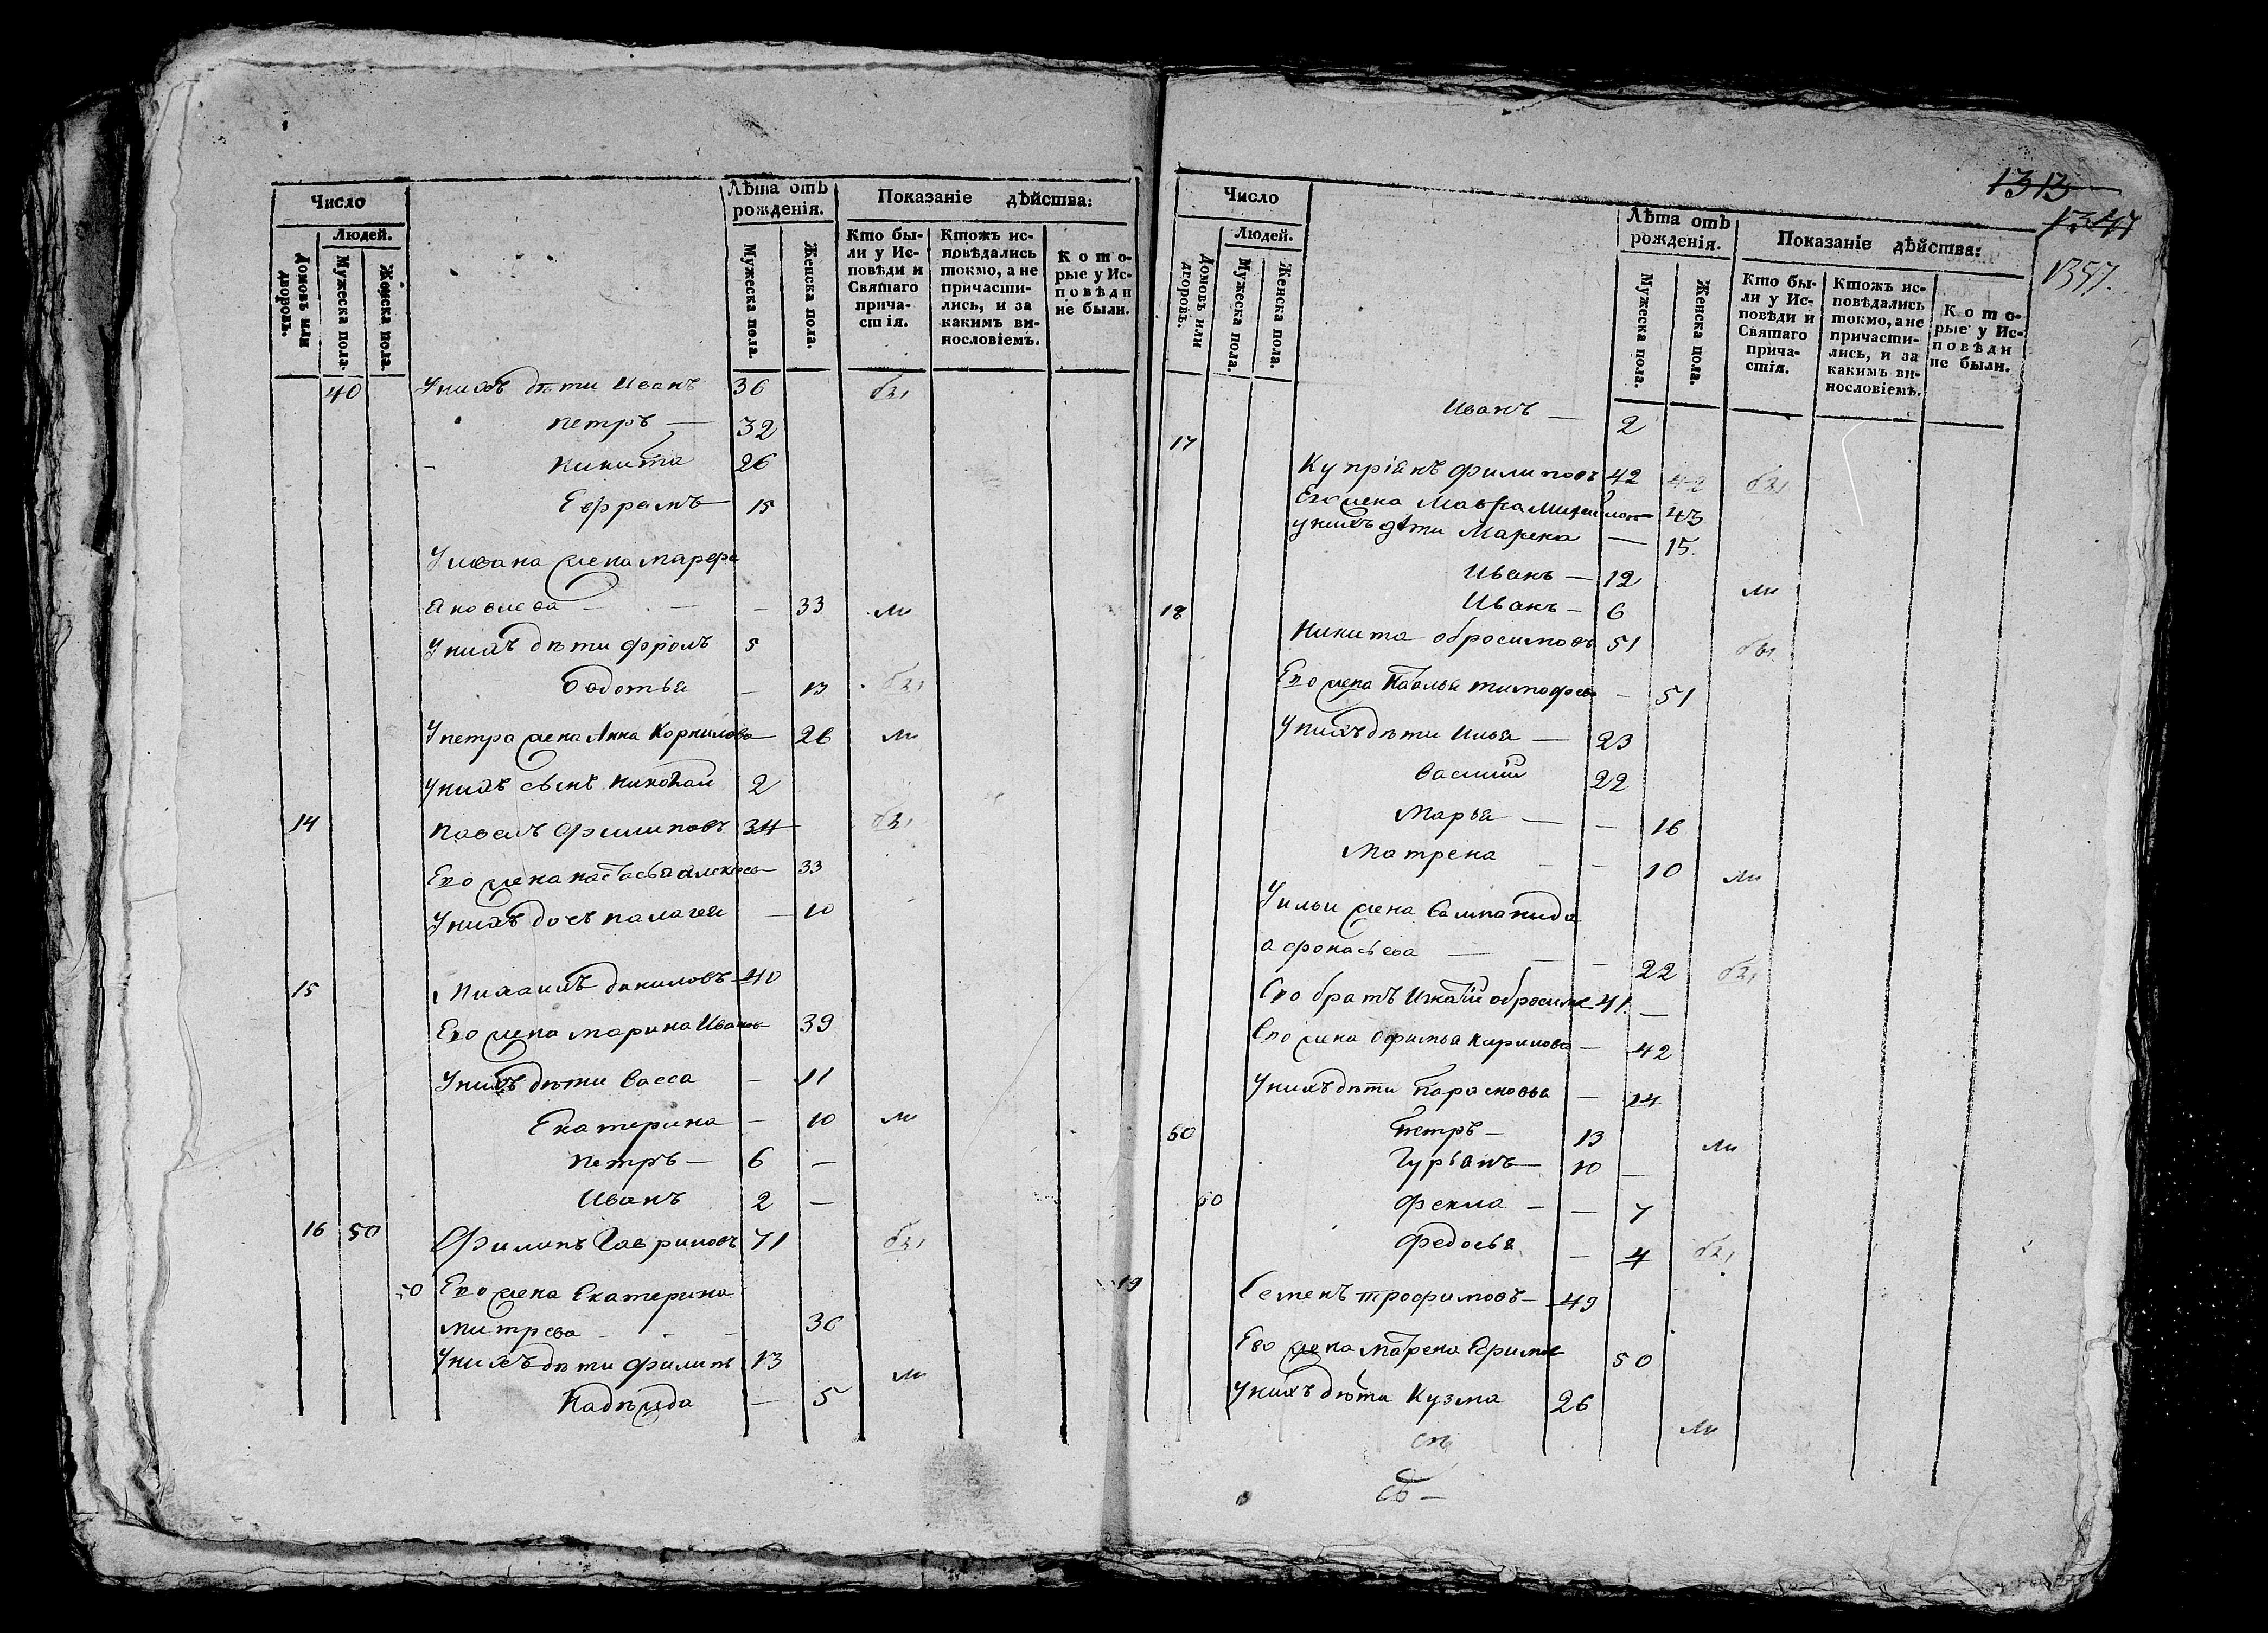 Число
Лѣта отъ рожденія.
Показаніе дѣйства:
Домовъ или дворовъ.
Людей.
Мужеска пола.
Женска пола.
Мужеска пола.
Женска пола.
Кто были у Исповѣди и Святаго причастія.
Ктожъ исповѣдались токмо, а не причастились, и за какимъ винословіемъ.
Которые у Исповѣди не были.
40 Унихъ дѣти Иванъ 36 бы
петръ — 32
никита 26
Ефремъ — 15
Уивана жена марфа
яковлева — — — 33 ли
Унихъ дѣти фролъ 5
овдотья — 13 бы
Упетра жена Анна Корнилова — 26 ли
Унихъ сынъ николай 2
14 павелъ филиповъ 34 бы
Его жена настасья алексеева — 33
Унихъ дочь палагея — 10
15 Михаилъ даниловъ — 40
Его жена марина Иванова 39
Унихъ дѣти васса — 11
Екатерина — 10 ли
петръ — 6 —
Иванъ 2 —
16 50 Филипъ Гавриловъ 71 бы
50 Его жена Екатерина
митрева - - - 36
Унихъ дѣти филипъ 13
ли
Надѣжда — 5
1313
1347
1357.
Число
Лѣта отъ рожденія.
Показаніе дѣйства:
Домовъ или дворовъ.
Людей.
Мужеска пола.
Женска пола.
Мужеска пола.
Женска пола.
Кто были у Исповѣди и Святаго причастія.
Ктожъ исповѣдались токмо, а не причастились, и за какимъ винословіемъ.
Которые у Исповѣди не были.
Иванъ — 2
17
Купріянъ филиповъ 42 42 бы
Его жена Мавра Михайлов 43
унихъ дѣти Марена — 15.
Иванъ — 12 ли
18 Иванъ — 6
Никита обросимовъ 51 бы
Его жена Наталья тимофеева — 51
Унихъ дѣти Илья — 23
василій 22
Марья — — 16
Матрена — — 10 ли
Уильи жена
афонасьева — — — 22 бы
Его братъ Игнатій обросимов 41. —
Его жена офимья Карилова — 42
Унихъ дѣти Парасковья — 14
60 Петръ — 13 ли
Гурьянъ — 10 —
60 Фекла — — 7
Федосья — 4 бы
19 Семенъ трофимовъ — 49
Его жена Марена Ефимов 50
Унихъ дѣти Кузма 26
ли